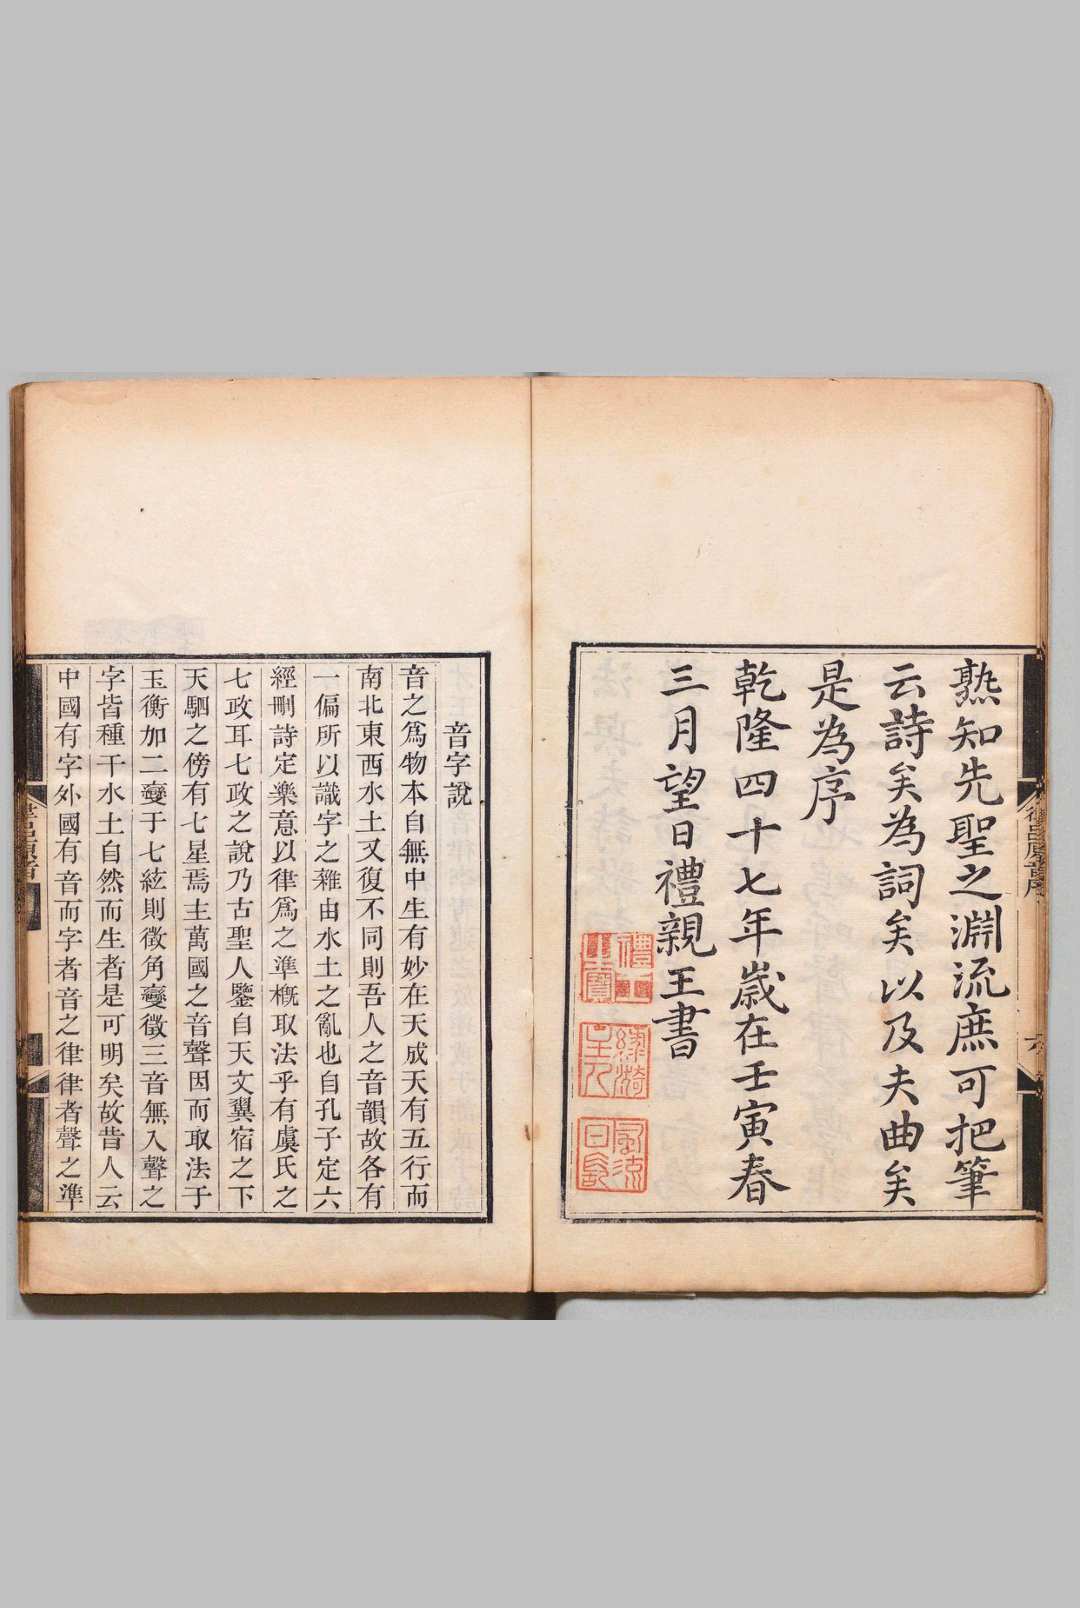 律呂原音序
六
熟知先聖之淵流庶可把筆
云詩矣為詞矣以及夫曲矣
是為序
乾隆四十七年歲在壬寅春
三月望日禮親王書
音字說
音之爲物本自無中生有妙在天成天有五行而
南北東西水土又復不同則吾人之音韻故各有
一偏所以識字之雜由水土之亂也自孔子定六
經刪詩定樂意以律爲之準槪取法乎有虞氏之
七政耳七政之說乃古聖人鑒自天文翼宿之下
天駟之傍有七星焉主萬國之音聲因而取法于
玉衡加二變于七絃則徵角變徵三音無入聲之
字皆種干水土自然而生者是可明矣故昔人云
中國有字外國有音而字者音之律律者聲之準